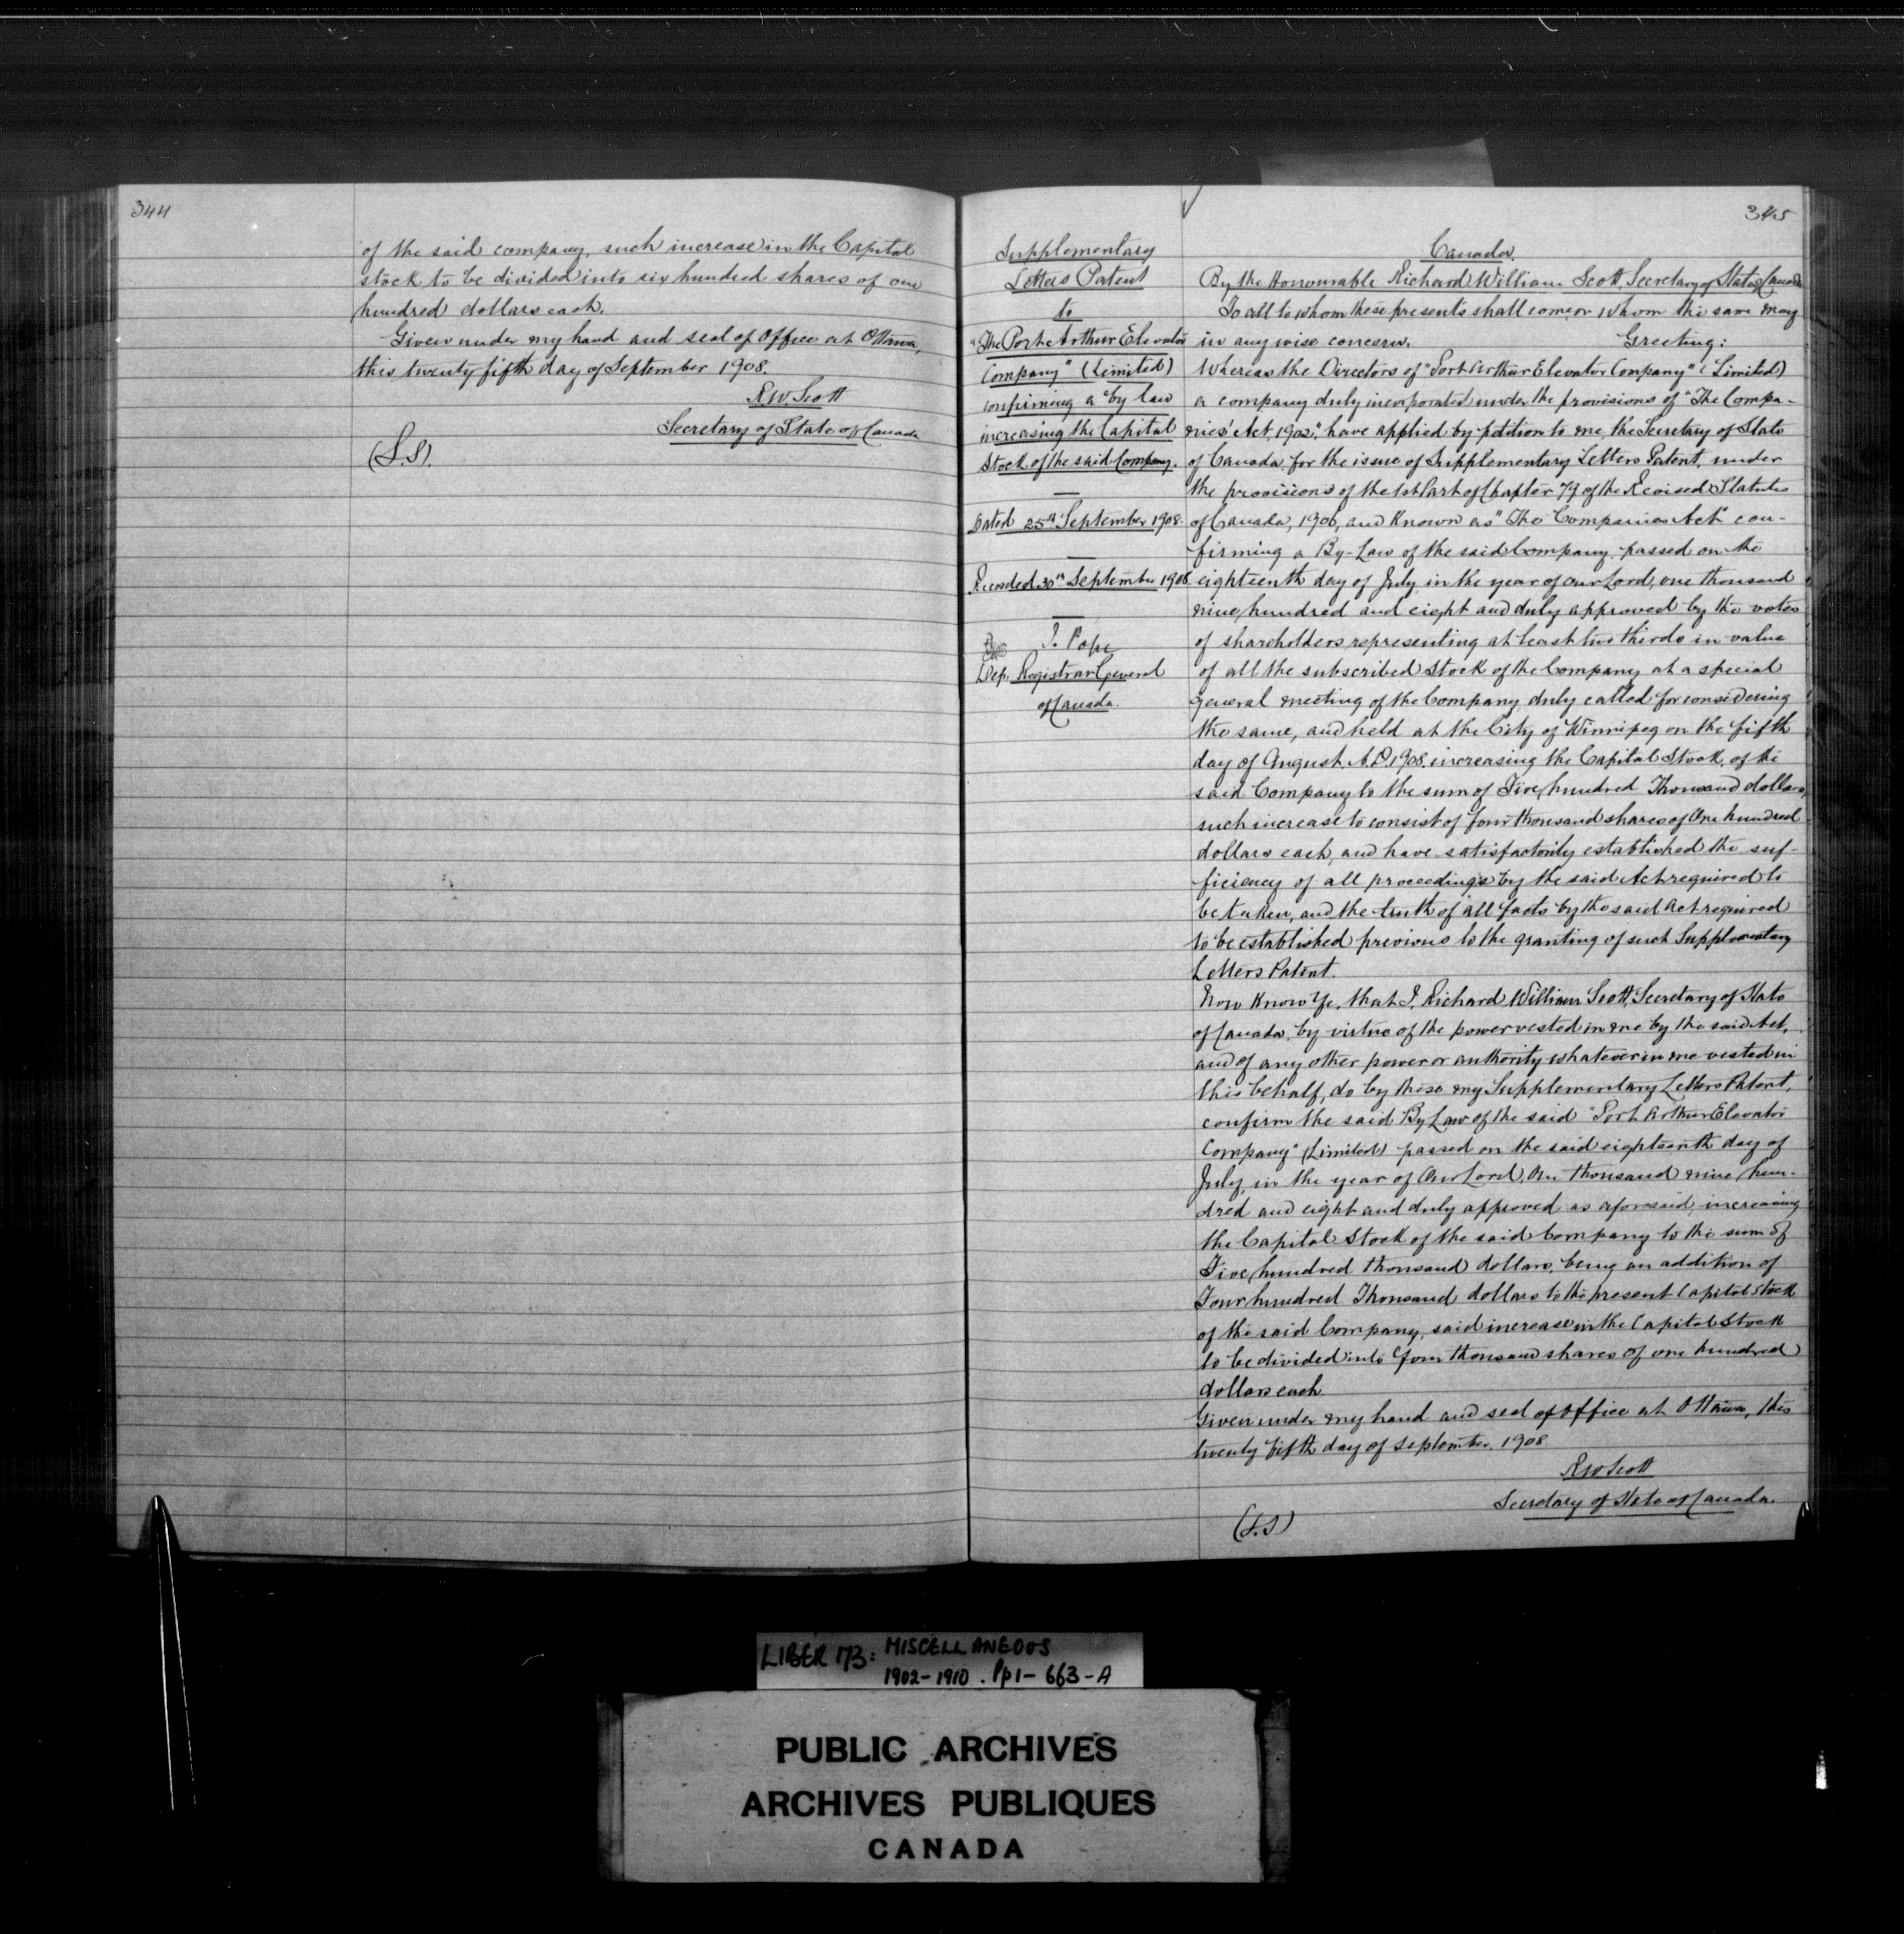 344
of the said company, such increase in the Capital
stock to be divided into six hundred shares of one
hundred dollars each.
Given under my hand and seal of Office at Ottawa,
this twenty fifth day of September 1908.
R.W. Scott
Secretary of State of Canada
(L.S).
345
Supplementary
Letters Patent
to
"The Port Arthur Elevator
Company" (Limited)
confirming a by law
increasing the Capital
Stock of the said Company.
Dated 25th September 1908.
Recorded 30th September 1908.
J. Pope
Dep. Registrar General
of Canada.
Canada.
By the Honourable Richard William Scott, Secretary of State of Canada
To all to whom these presents shall come, or whom the same may
in any wise concern, Greeting:
Whereas the Directors of "Port Arthur Elevator Company" (Limited)
a company duly incorporated under the provisions of "The Compa-
nies' Act, 1902," have applied by petition to me, the Secretary of State
of Canada, for the issue of Supplementary Letters Patent, under
the provisions of the 1st Part of Chapter 79 of the Revised Statutes
of Canada, 1906, and known as "The Companies Act" con-
firming a By-Law of the said Company, passed on the
eighteenth day of July, in the year of our Lord, one thousand
nine hundred and eight and duly approved by the votes
of shareholders representing at least two thirds in value
of all the subscribed stock of the Company at a special
general meeting of the Company, duly called for considering
the same, and held at the City of Winnipeg on the fifth
day of August. A.D. 1908. increasing the Capital Stock, of the
said Company to the sum of Five hundred Thousand dollars,
such increase to consist of four thousand shares of One hundred
dollars each, and have satisfactorily established the suf-
ficiency of all proceedings by the said Act required to
be taken, and the truth of all facts by the said act required
to be established previous to the granting of such Supplementary
Letters Patent.
Now Know Ye, that I, Richard William Scott, Secretary of State
of Canada, by virtue of the power vested in me by the said Act,
and of any other power or authority whatever in me vested in
this behalf, do by these my Supplementary Letters Patent,
confirm the said By Law of the said "Port Arthur Elevator
Company" (Limited) passed on the said eighteenth day of
July, in the year of Our Lord, One thousand nine hun-
dred and eight and duly approved as aforesaid, increasing
the Capital Stock of the said Company to the sum of
Five hundred thousand dollars, being an addition of
Four hundred Thousand dollars to the present Capital Stock
of the said Company, said increase in the Capital Stock
to be divided into four thousand shares of one hundred
dollars each.
Given under my hand and seal of Office at Ottawa, this
twenty fifth day of September. 1908
R W Scott
Secretary of State of Canada.
(L.S)
LIBER 173: MISCELLANEOUS
1902-1910. Pp1-663-A
PUBLIC ARCHIVES
ARCHIVES PUBLIQUES
CANADA